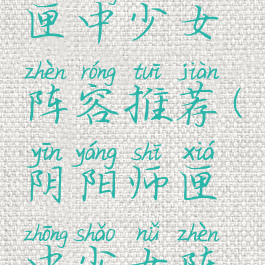 匣中少女
zhèn róng tuī jiàn
阵容推荐(
yīn yáng shī xiá
阴阳师匣
zhōng shǎo nǚ zhèn
中少女阵